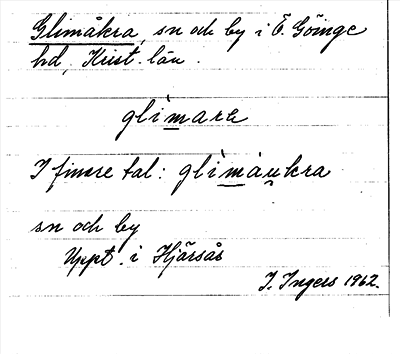 Glimåkra, sn och by i Ö. Göinge
hd, Krist. län.
glìmark
I finare tal: glìmàukra
sn och by
Uppt. i Hjärsås
I. Ingers 1962.